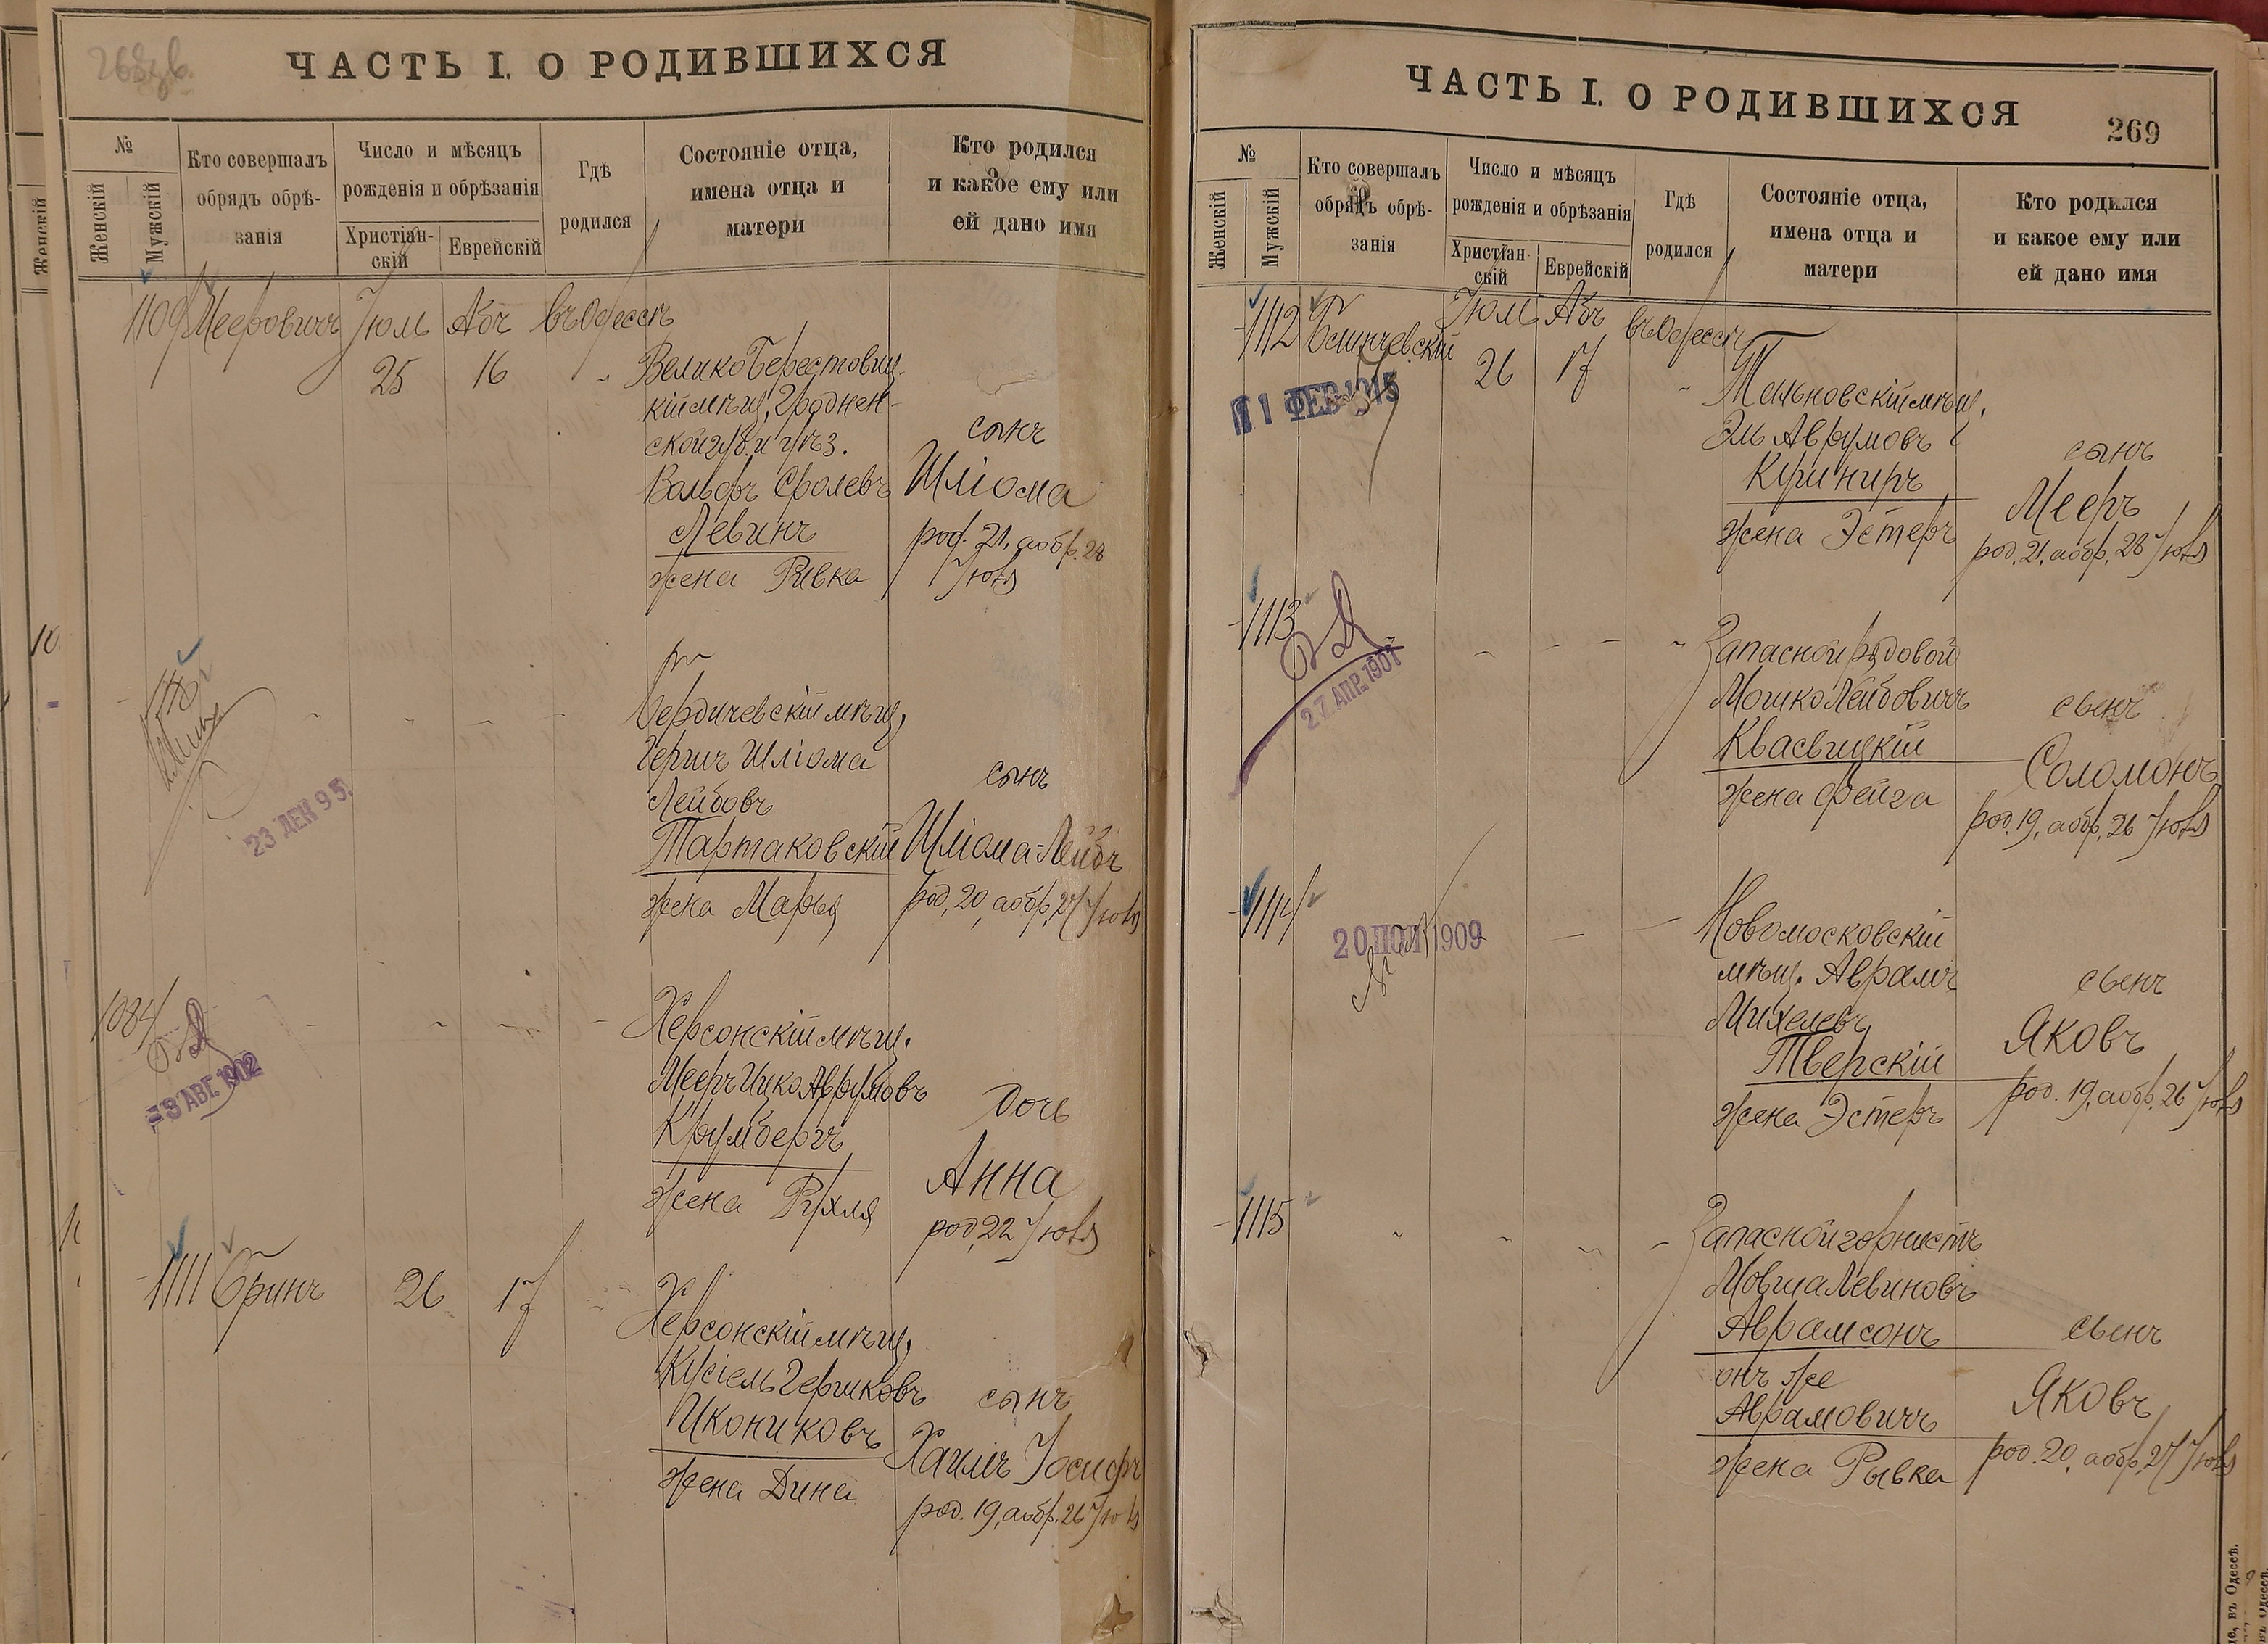 268 об.
ЧАСТЬ I. О РОДИВШИХСЯ
№
Женскій
Мужскій
Кто совершалъ
обрядъ обрѣ-
занія
Число и мѣсяцъ
рожденія и обрѣзанія
Христіан-
скій
Еврейскій
Гдѣ
родился
Состояніе отца,
имена отца и
матери
Кто родился
и какое ему или
ей дано имя
1109 Мееровичъ Іюль Абъ въ Одессѣ
25 16
Велико Берестовиц-
кій мѣщ. Гроднен-
ской губ. и уѣз.
Вольфъ Сролевъ
Левинъ
жена Рывка
сынъ
Шліома
род. 21, а обр. 28
Іюля
1110
23 ДЕК 95.
Бердичевскій мѣщ.
Гершъ Шліома
Лейбовъ
Тартаковскій
жена Марья
сынъ
Шліома-Лейбъ
род. 20, а обр. 27 Іюля
1084
-8 АВГ. 1902
Херсонскій мѣщ.
Мееръ Ицко Аврумовъ
Крумбергъ
жена Рухля
дочь
Анна
род. 22 Іюля
1111 Бринъ 26 17
Херсонскій мѣщ.
Кусіель Гершковъ
Икониковъ
жена Дина
сынъ
Хаимъ Іосифъ
род. 19, а обр. 26 Іюля
ЧАСТЬ I. О РОДИВШИХСЯ
269
№
Женскій
Мужскій
Кто совершалъ
обрядъ обрѣ-
занія
Число и мѣсяцъ
рожденія и обрѣзанія
Христіан-
скій
Еврейскій
Гдѣ
родился
Состояніе отца,
имена отца и
матери
Кто родился
и какое ему или
ей дано имя
1112 Іюль Абъ въ Одессѣ
26 17
11 ФЕВ 1915
Тальновскій мѣщ.
Эль Аврумовъ
Кушниръ
жена Эстеръ
сынъ
Мееръ
род. 21, а обр. 28 Іюля
1113
27. АПР. 1907
Запасной рядовой
Мошко Лейбовичъ
Квасвицкій
жена Фейга
сынъ
Соломонъ
род. 19, а обр. 26 Іюля
1114
20 1909
Новомосковскій
мѣщ. Аврамъ
Михелевъ
Тверскій
жена Эстеръ
сынъ
Яковъ
род. 19, а обр. 26 Іюля
1115
Запасной горнистъ
Мовша Левиновъ
Аврамсонъ
онъ же
Аврамовичъ
жена Рывка
сынъ
Яковъ
род. 20, а обр. 27 Іюля